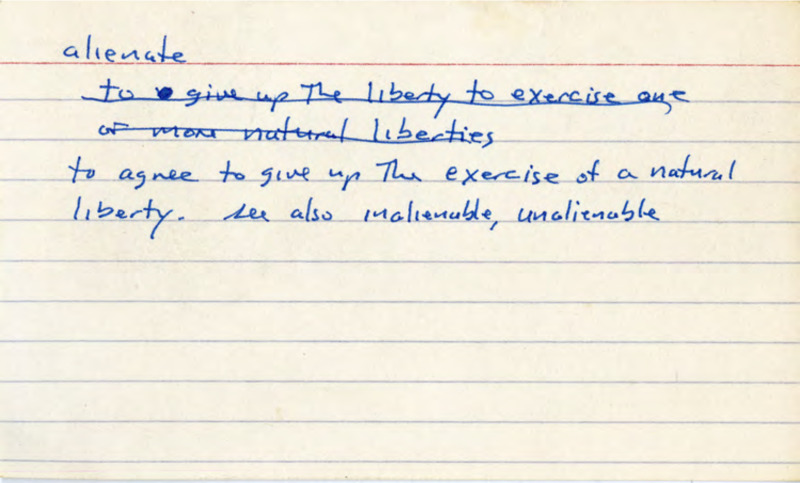 alienate
to give up The liberty to exercise one
or more natural liberties
to agree to give up The exercise of a natural
liberty. see also inalienable, unalienable